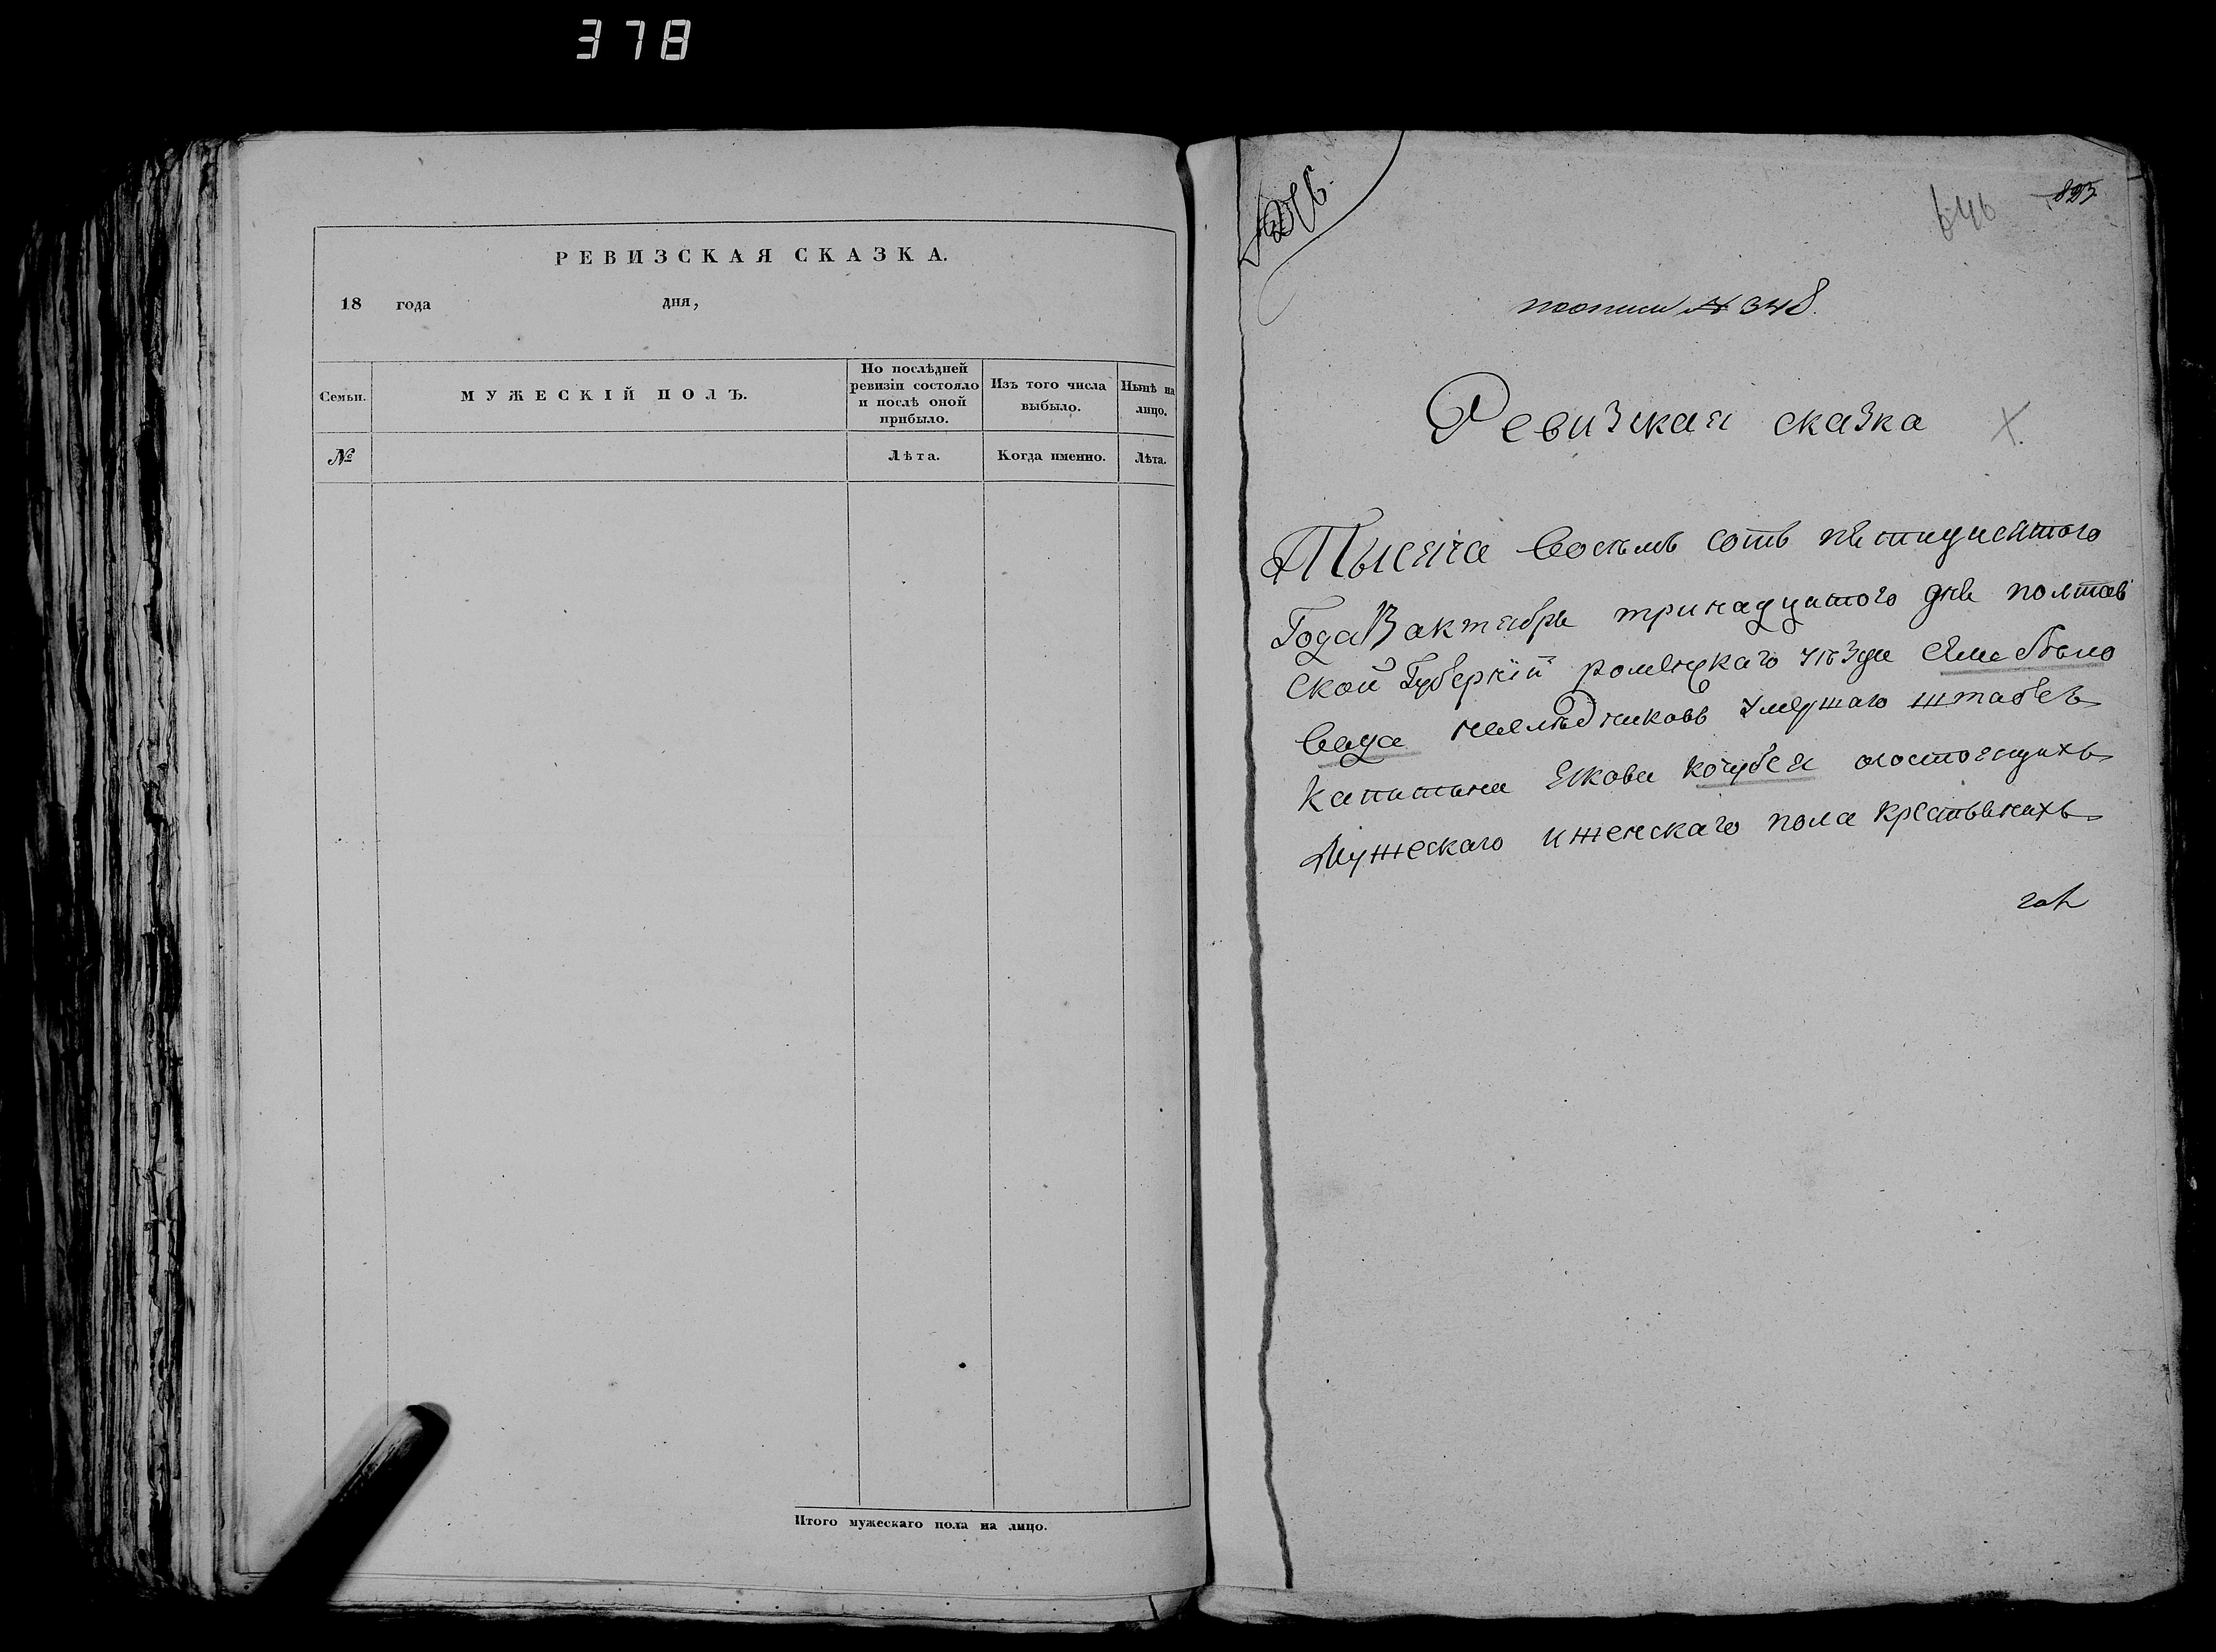 378
РЕВИЗСКАЯ СКАЗКА.
18 года дня,
Семьи.
МУЖЕСКІЙ ПОЛЪ.
По послѣдней ревизіи состояло и послѣ оной прибыло.
Изъ того числа выбыло.
Нынѣ на лицо.
№
Лѣта.
Когда именно.
Лѣта.
Итого мужескаго пола на лицо.
646 823
пописи № 348.
Ревизкая сказка
Тысяча восемъ сотъ пятидисятого
Года актября тринадцатого дня полтав
ской Губерніи роменскаго уѣзда
наслѣдниковъ умершаго штабсъ
капитана Якова кочубея осостоящихъ
Мужескаго и женскаго пола крестьянахъ